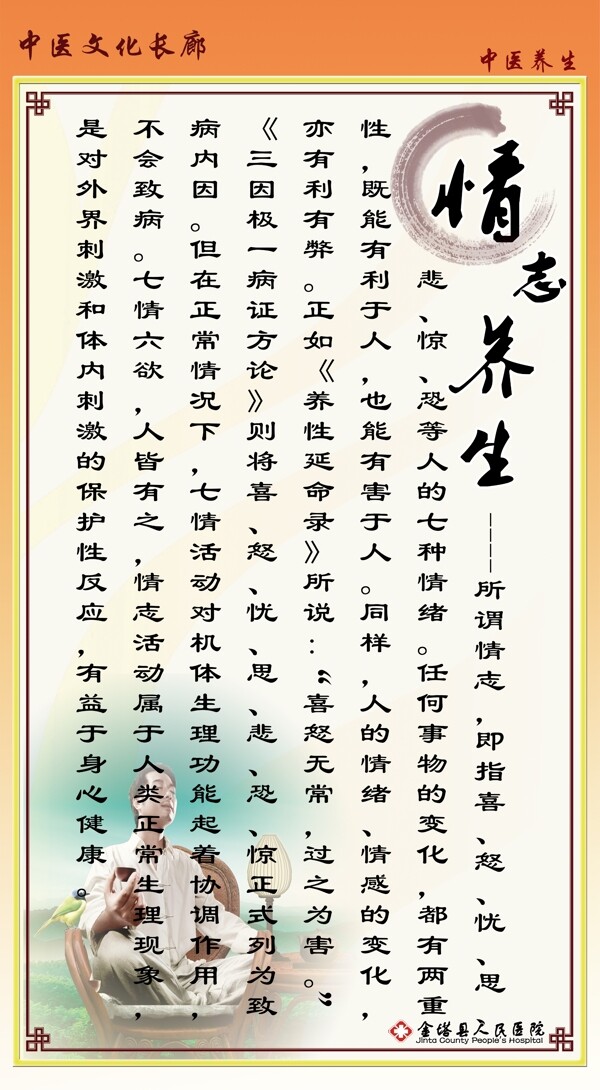 中医文化长廊
中医养生
情志养生
————所谓情志，即指喜、怒、忧、思
悲、惊、恐等人的七种情绪。任何事物的变化，都有两重
性，既能有利于人，也能有害于人。同样，人的情绪、情感的变化，
亦有利有弊。正如《养性延命录》所说：“喜怒无常，过之为害。”
《三因极一病证方论》则将喜、怒、忧、思、悲、恐、惊正式列为致
病内因。但在正常情况下，七情活动对机体生理功能起着协调作用，
不会致病。七情六欲，人皆有之，情志活动属于人类正常生理现象，
是对外界刺激和体内刺激的保护性反应，有益于身心健康。
金塔县人民医院
Jinta County People's Hospital